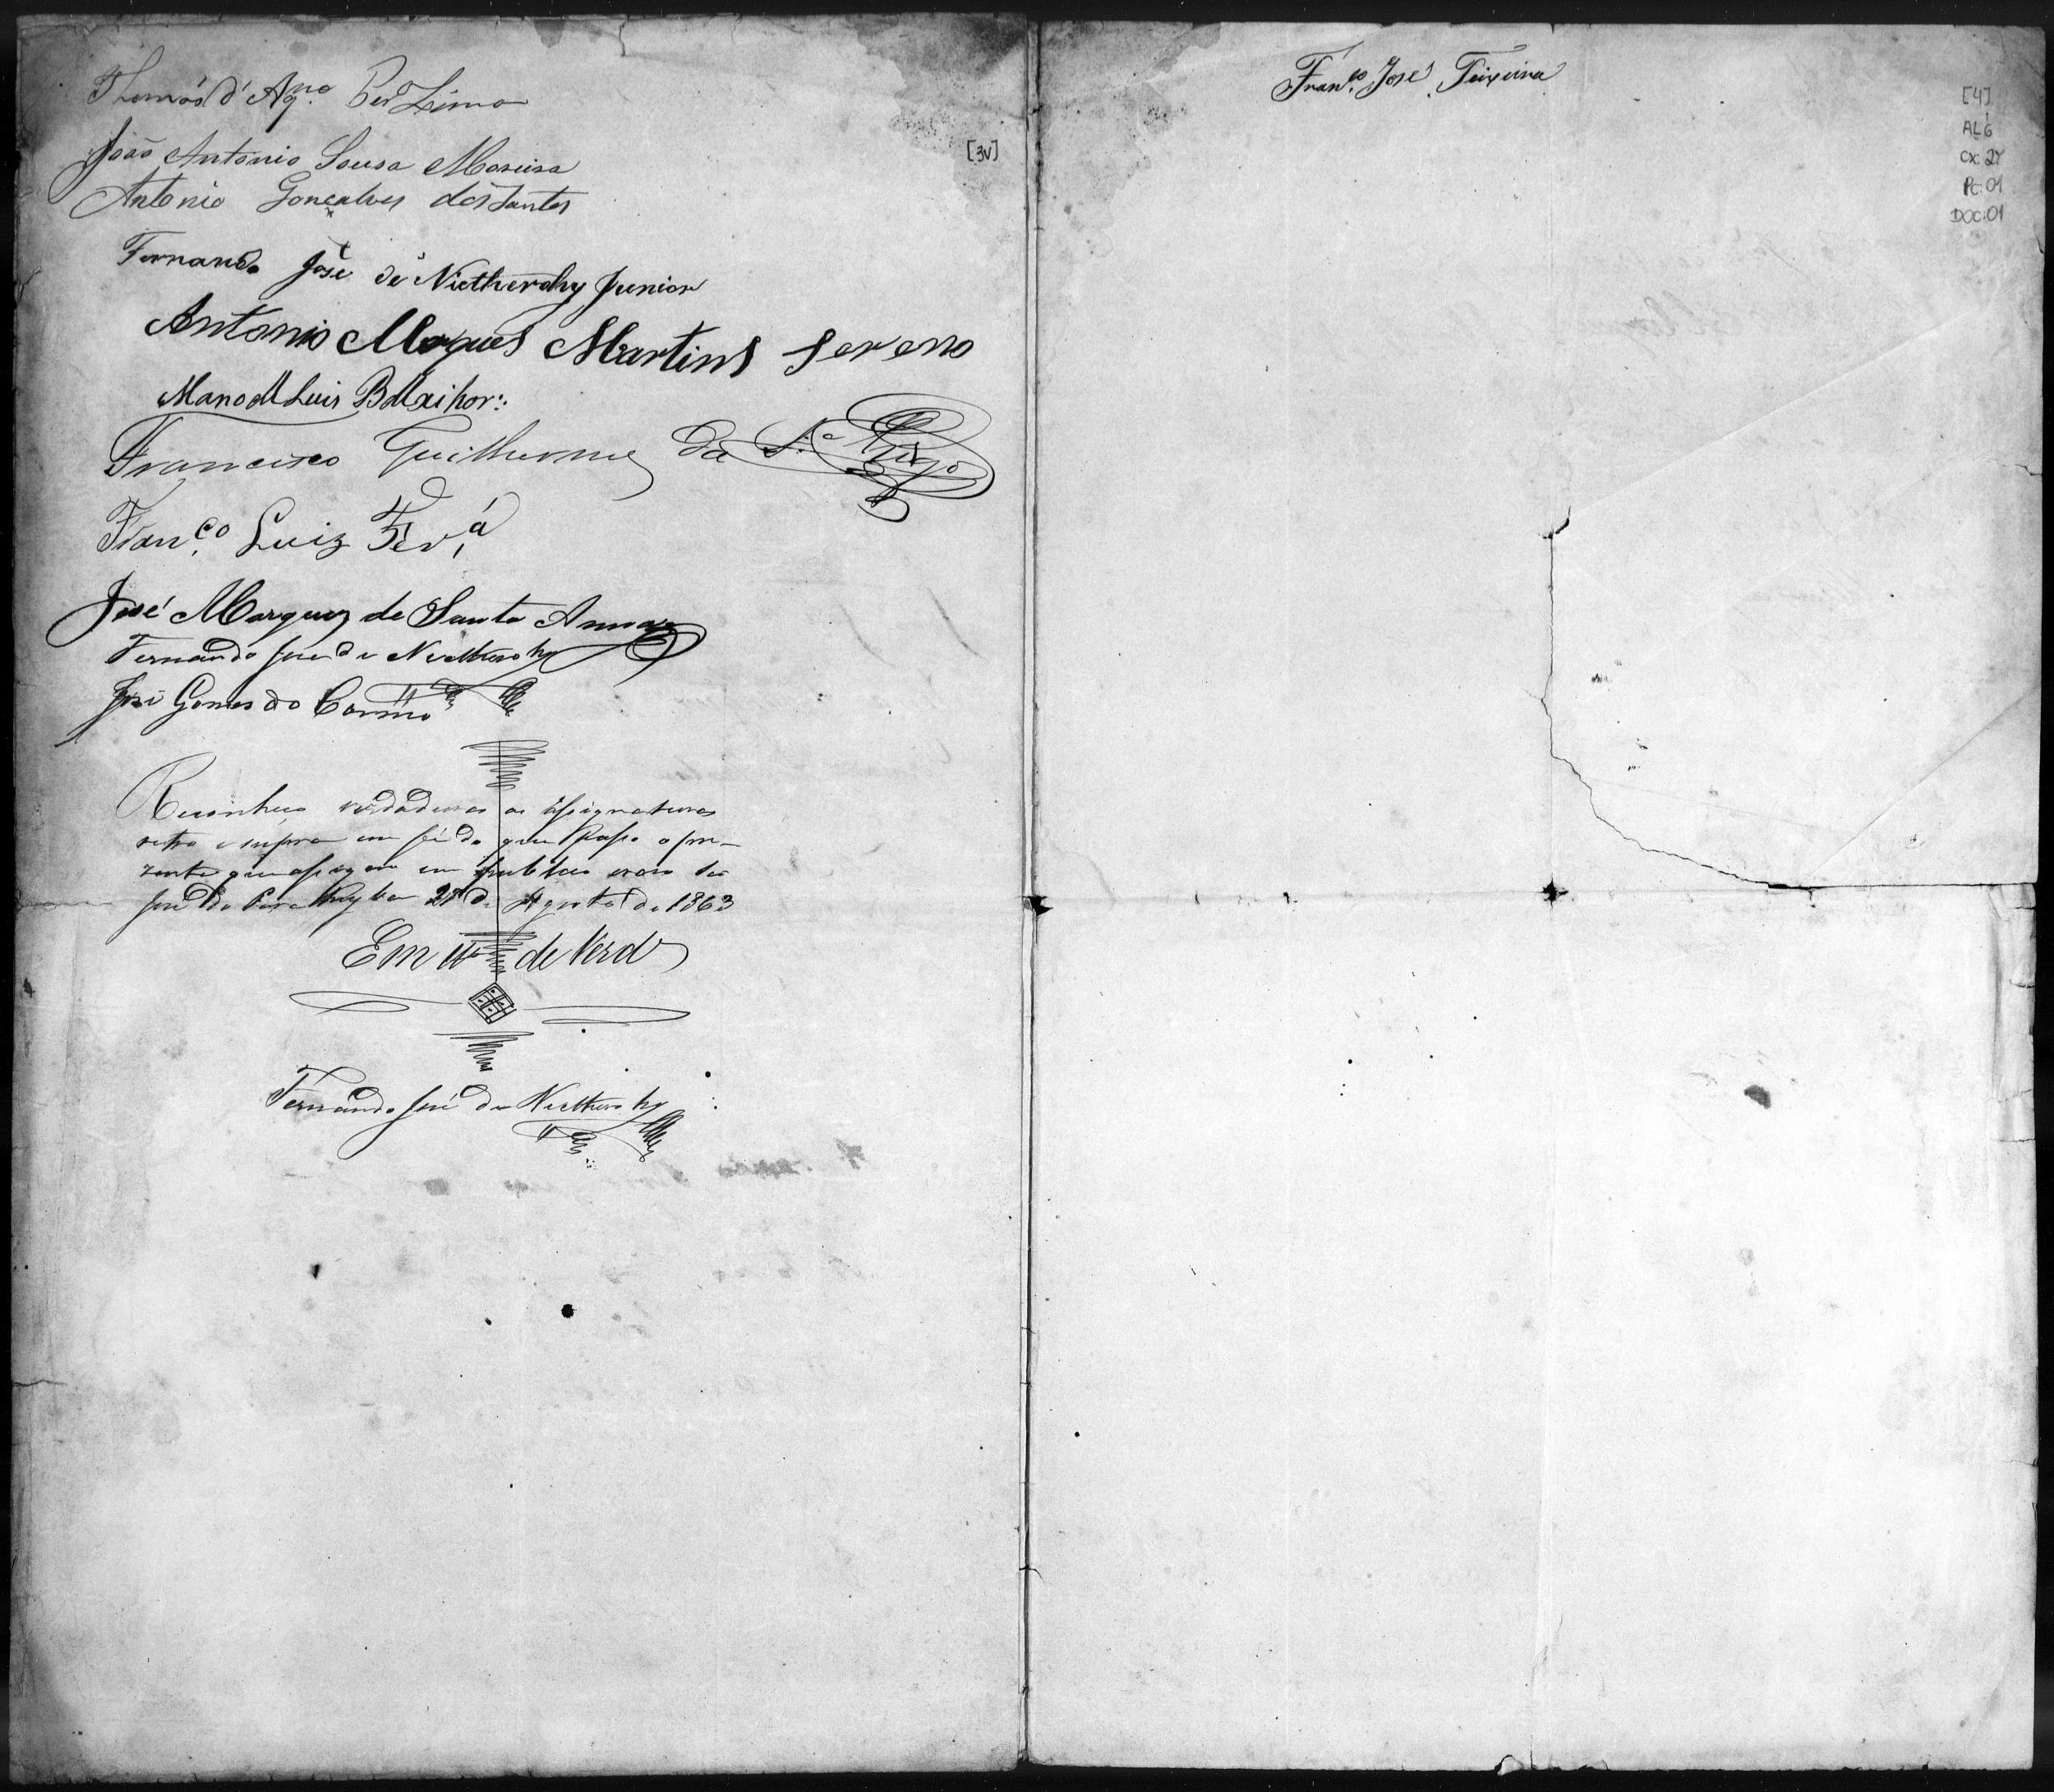 Thomás d'Aqno. Per Lima
[3v]
João Antonio Sousa Moreira
Antonio Gonçalves dos Santos
Fernando José de Nictherohy Junior
Antonio Marques Martins Sereno
Manoel Luis
Francisco Guilherme da Sa.
Franco. Luiz Ferra
José Marques de Santa Anna
Fernando José de Nictherohy
José Gomes do Carmo
Reconheço verdadeiras as assignaturas
retro e supra em fé do que passo o pre-
zente que assigno em publico e raso
Parahyba 28 de Agosto de 1863
Em de Verde
Fernando José de Nictherohy
Franco. José Teixeira
[4]
AL6
CX: 27
PC: 01
DOC: 01